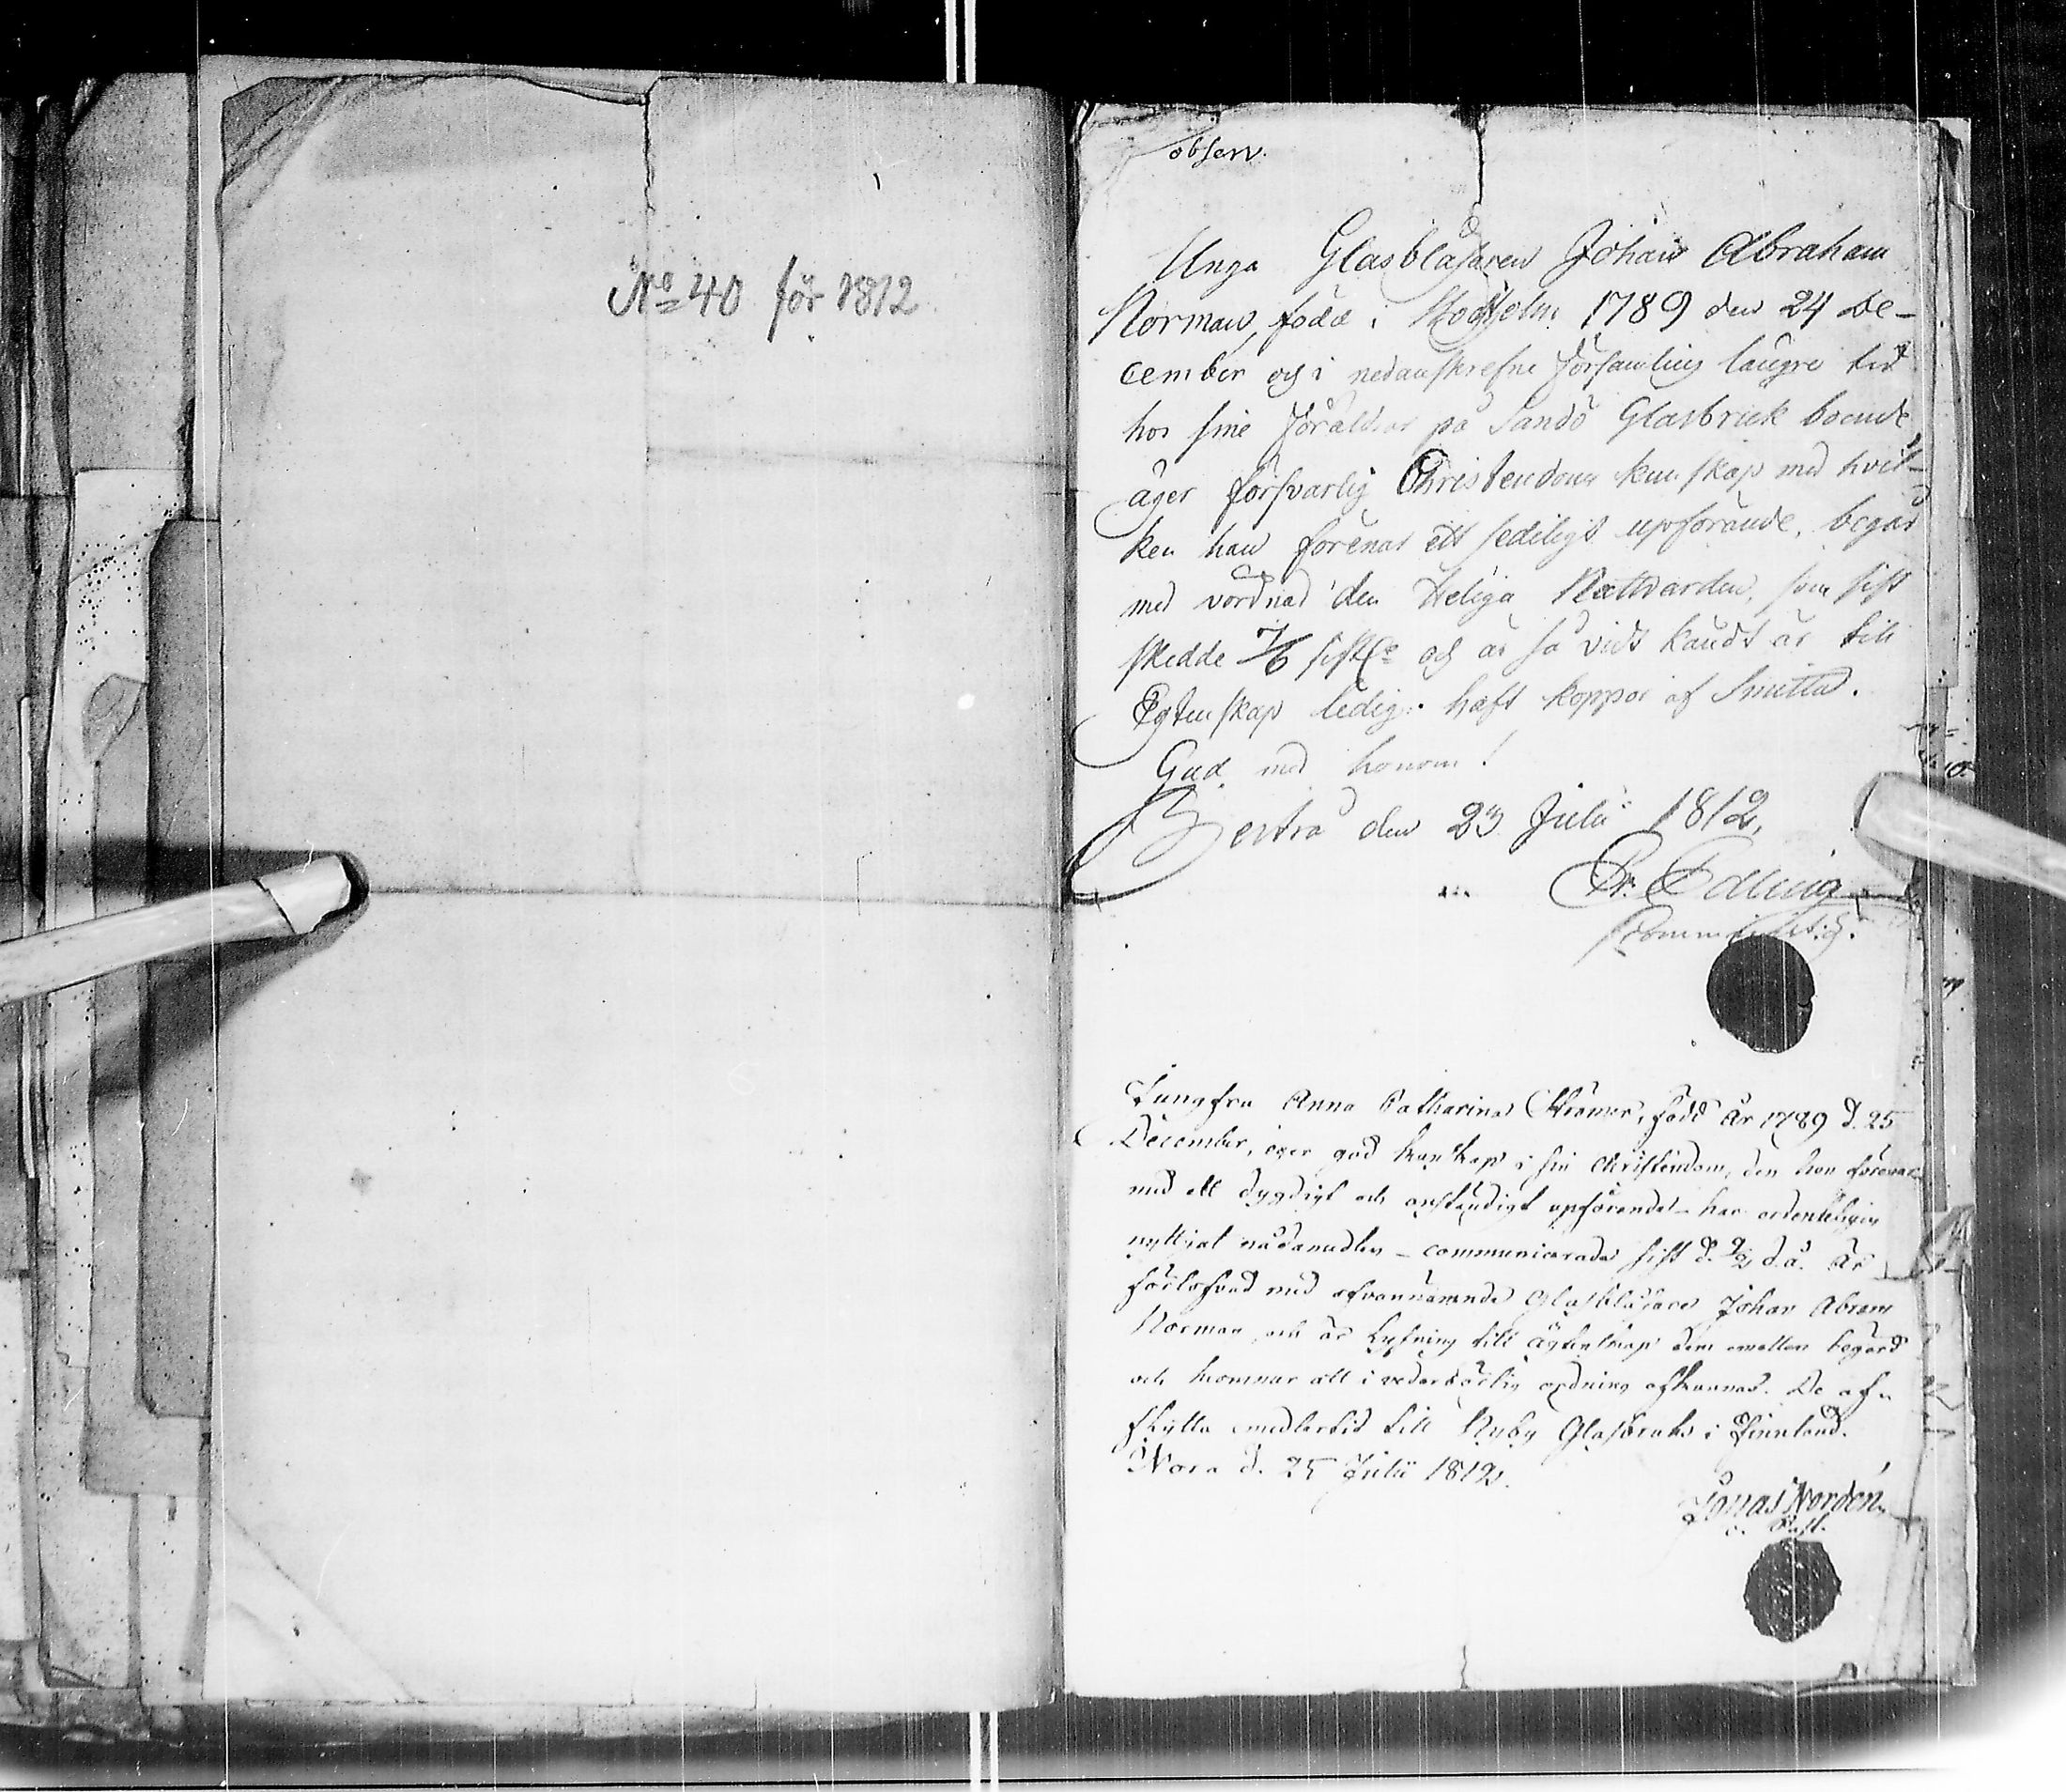 No 40 för 1812
observ.
Unga Glasblåsaren Johan Abraham
Norman, född i Stockholm 1789 den 24 De-
cember och i nedanskrefne Församling längre tid
hos sine Föräldrar på Sandö Glasbruk boende,
äger försvarlig Christendoms kunskap med hvil-
ken han förenar ett sedeligt upförande, begår
med vördnad den Heliga Nattvarden, som sist
skedde 7/6 sistl. och är så vidt kändt är till
Egtenskap ledig. haft koppor af Smitta.
Gud med honom!
den 23 Julii 1812,
Pr.
Jungfru Anna Catharina född år 1789 d. 25
December, eger god kunskap i sin Christendom, den hon förenar
med ett dygdigt och anständigt upförande - har ordenteligen
nyttjat nådamedlen - communicerade sist d. d.å. Är
förlofvad med ofvannämnde Glasblåsare Johan Abram
Norman och är Lysning till Ägtenskap dem emellan begärd
och kommer att i vederbörlig ordning afkunnas. De af-
flytta imedlertid till Nyby Glasbruk i Finnland.
Nora d. 25 Julii 1812.
Jonas Nordén
Past.